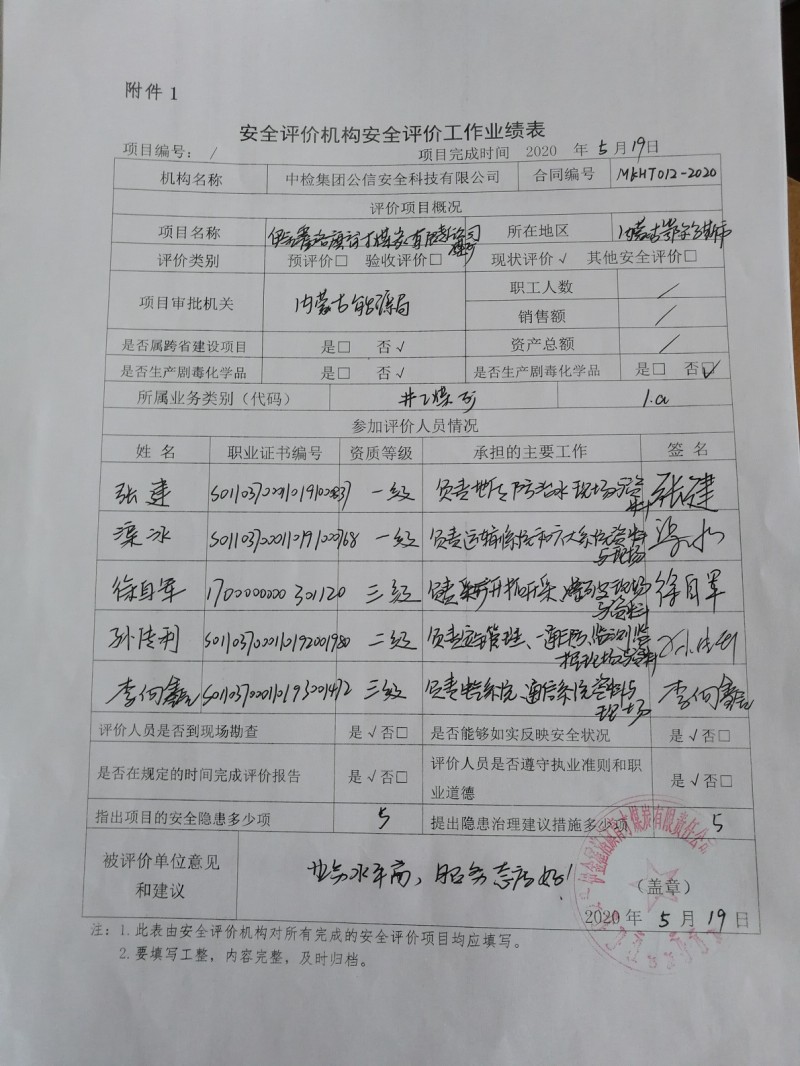 附件 1
安全评价机构安全评价工作业绩表
项目编号： / 项目完成时间 2020 年 5 月 19 日
机构名称 中检集团公信安全科技有限公司 合同编号 MKHT012-2020
评价项目概况
项目名称 所在地区 内蒙古鄂尔多斯市
评价类别 预评价□ 验收评价□ 现状评价√ 其他安全评价□
项目审批机关 内蒙古能源局 职工人数 /
销售额 /
是否属跨省建设项目 是□ 否√ 资产总额 /
是否生产剧毒化学品 是□ 否√ 是否生产剧毒化学品 是□ 否☑
所属业务类别（代码） 井工煤矿 1.a
参加评价人员情况
姓 名 职业证书编号 资质等级 承担的主要工作 签 名
张建 一级 负责地质防治水现场与资料 张建
梁冰 一级 负责运输系统和灭火系统资料与现场 梁冰
徐自军 1700000000301120 三级 徐自军
孙传利 S011037000110192001980 二级 孙传利
李向鑫 S011037000110193001472 三级 负责供电系统、通信系统资料与现场 李向鑫
评价人员是否到现场勘查 是√否□ 是否能够如实反映安全状况 是√否□
是否在规定的时间完成评价报告 是√否□ 评价人员是否遵守执业准则和职业道德 是√否□
指出项目的安全隐患多少项 5 提出隐患治理建议措施多少项 5
被评价单位意见和建议 业务水平高，服务态度好！ （盖章）
2020 年 5 月 19 日
注：1.此表由安全评价机构对所有完成的安全评价项目均应填写。
2.要填写工整，内容完整，及时归档。